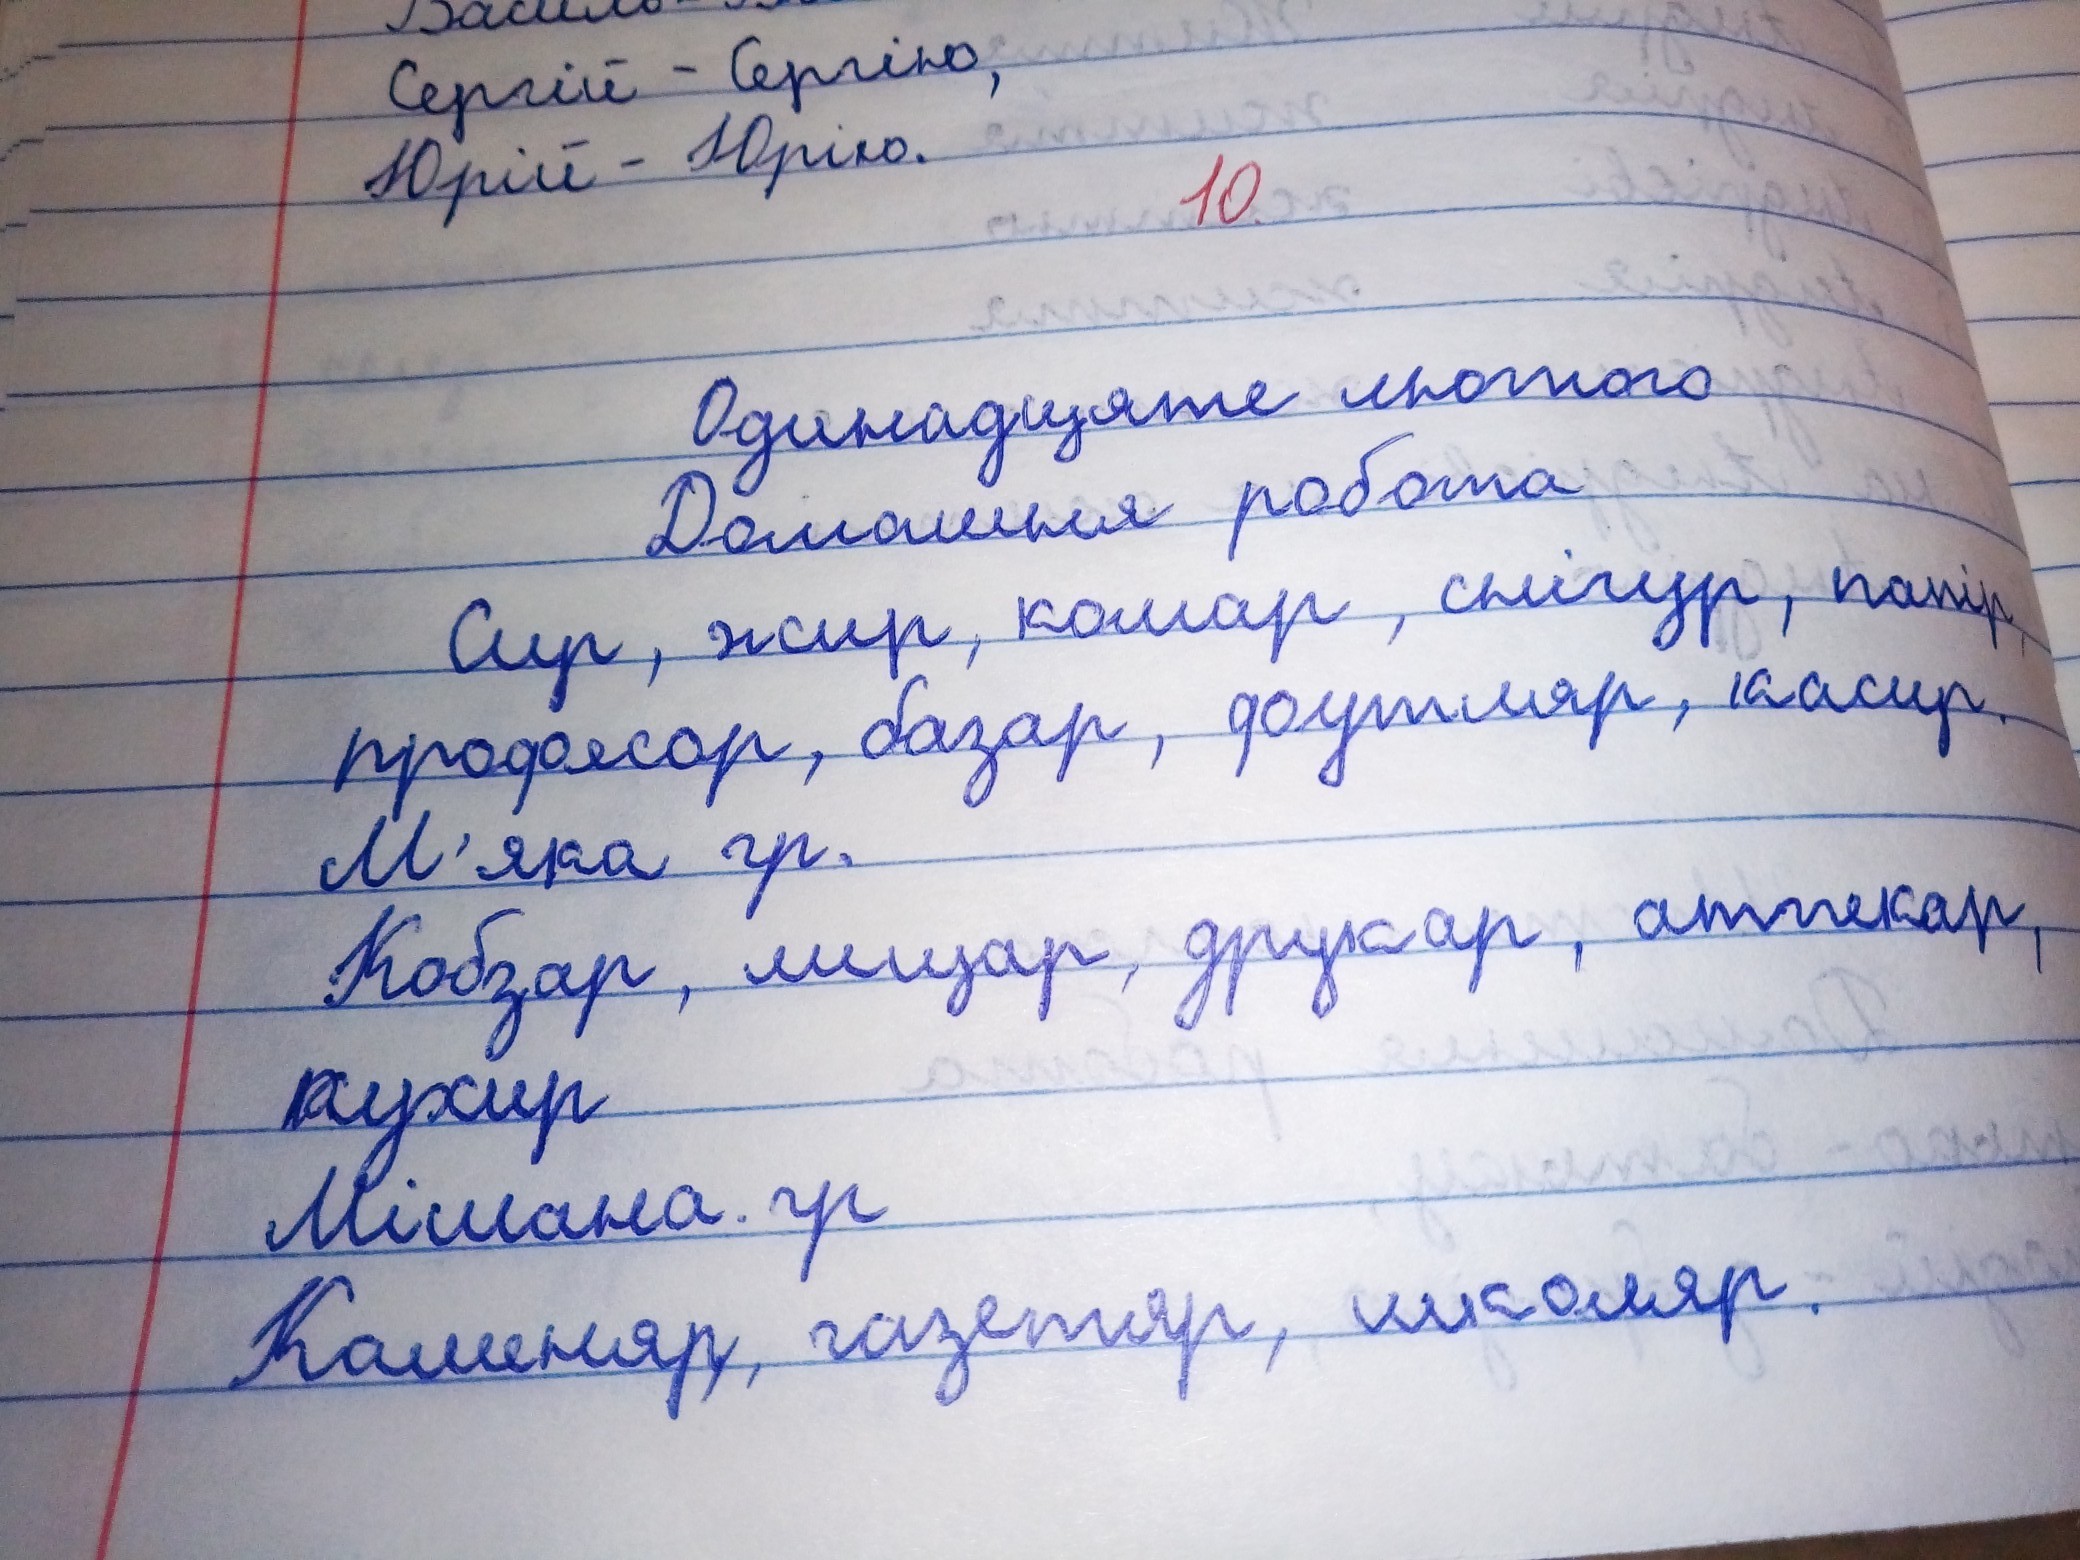 Василь -
Сергій - Сергію,
Юрій - Юрію.
10
Одинадцяте лютого
Домашня робота
Сир, жир, комар, снігур, папір,
професор, базар, футляр, касир.
М'яка гр.
Кобзар, лицар, друкар, аптекар,
кухир
Мішана. гр
Каменяр, газетяр, школяр.